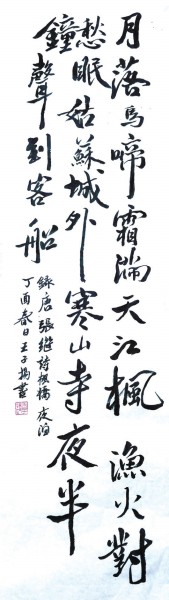 月落烏啼霜滿天江楓漁火對
愁眠姑蘇城外寒山寺夜半
鐘聲到客船
錄唐張繼詩楓橋夜泊
丁酉春日王子書